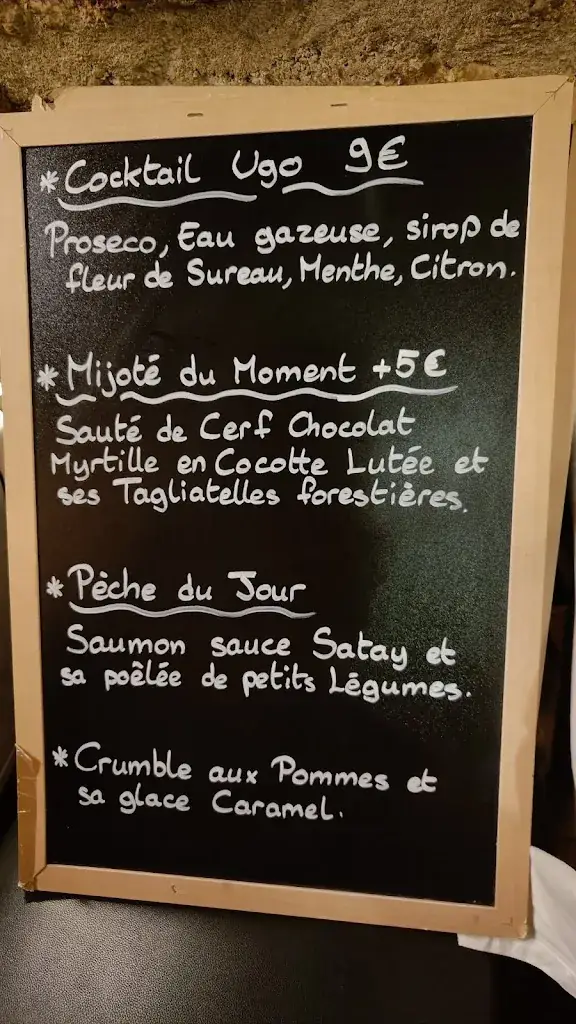 *Cocktail Ugo 9€
Proseco, Eau gazeuse, sirop de
fleur de Sureau, Menthe, Citron.
*Mijoté du Moment +5€
Sauté de Cerf Chocolat
Myrtille en Cocotte Lutée et
ses Tagliatelles forestières.
*Pèche du Jour
Saumon sauce Satay et
sa poêlée de petits Légumes.
*Crumble aux Pommes et
sa glace Caramel.